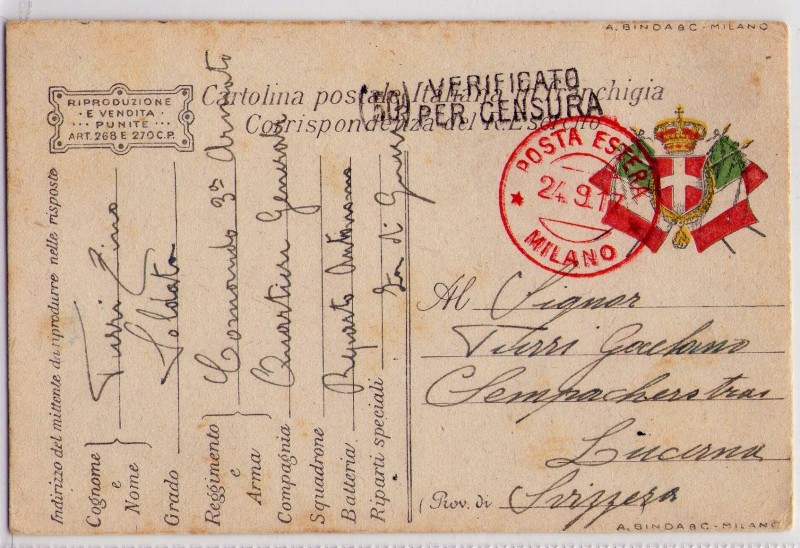 A. BINDA & C - MILANO
RIPRODUZIONE
E VENDITA
PUNITE
ART. 268 E 270 C.P.
Cartolina postale Italiana in franchigia
Corrispondenza del R. Esercito
(50) VERIFICATO
PER CENSURA
POSTA ESTERA
24.9.17
MILANO
Indirizzo del mittente da riprodurre nelle risposte
Cognome e Nome Turri Zino
Grado Soldato
Reggimento e Arma Comando 3ª Armata
Compagnia Quartier Generale
Squadrone
Batteria Reparto Autonomo
Riparti speciali Zona di Guerra
Al Signor
Turri Gaetano
Sempacherstras
Lucerna
(Prov. di Svizzera
A. BINDA & C - MILANO